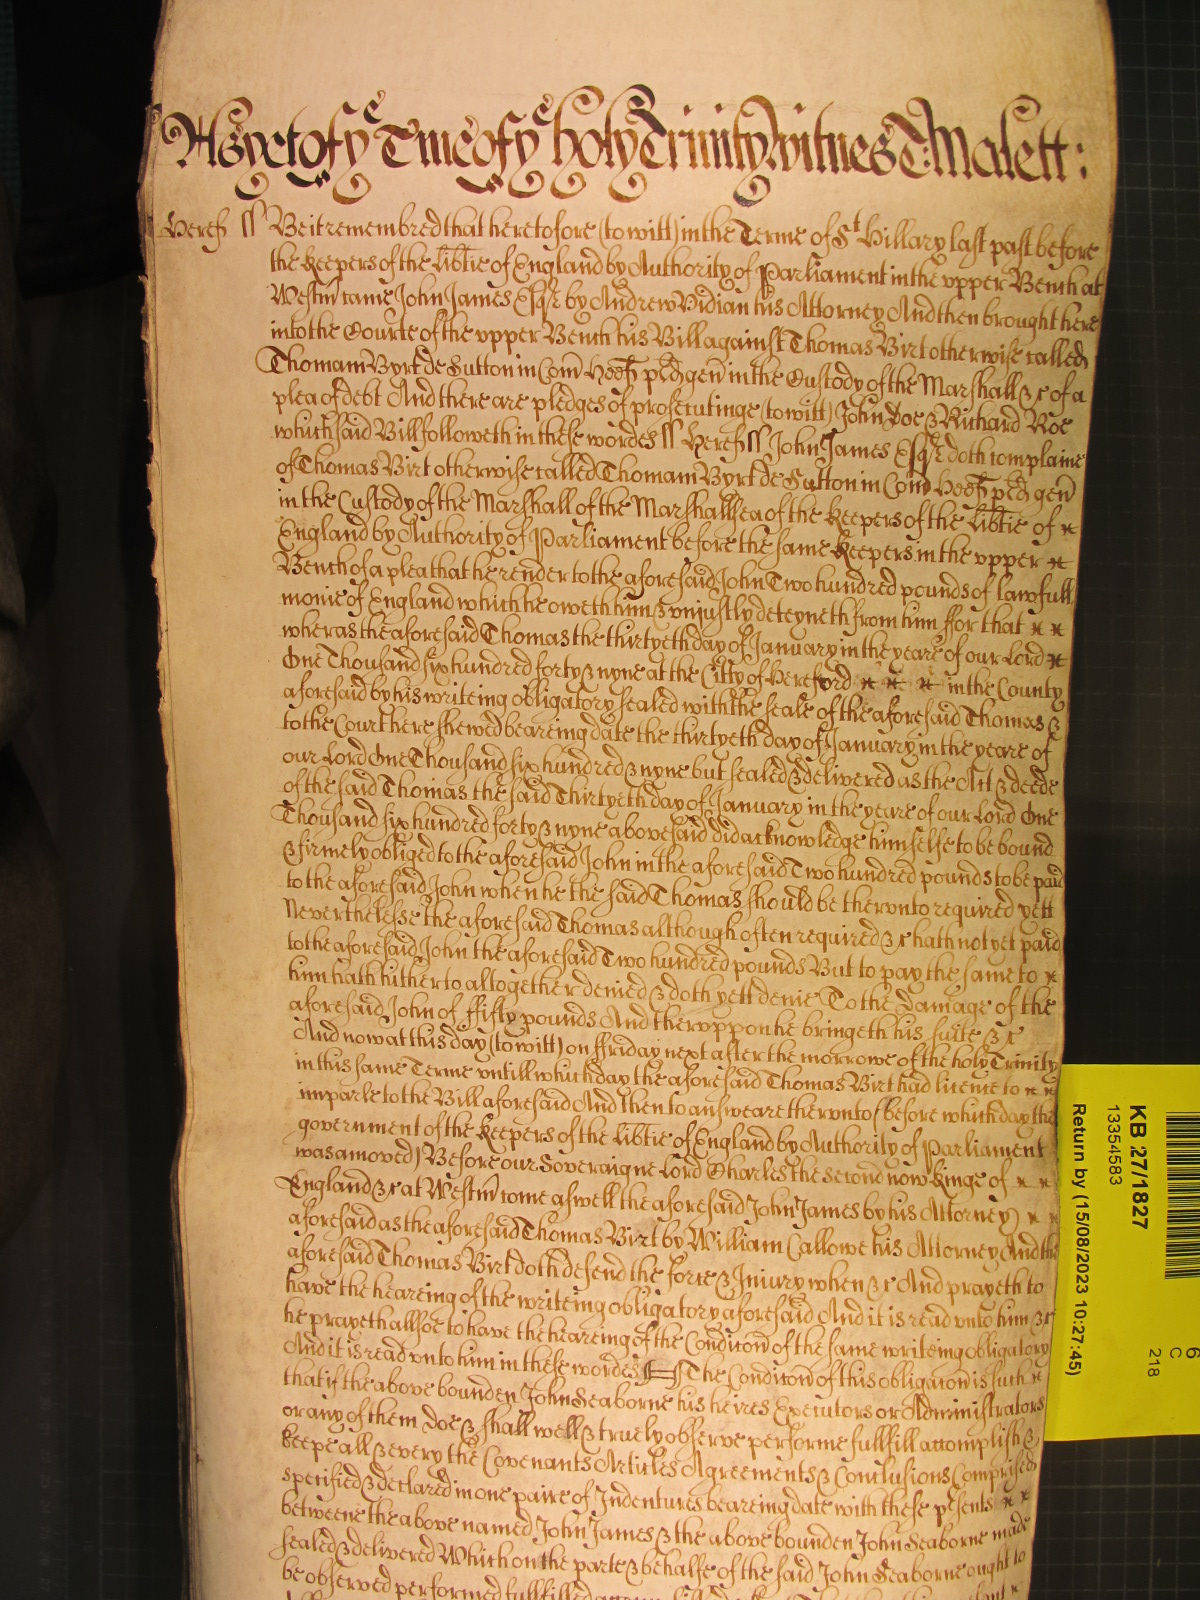 As yet of yᵉ Tme of yᵉ holy Trinity witnes T: Malett:
Heref ss Be it remembred that heretofore (to witt) in the Terme of Sᵗ Hillary last past before
the Keepers of the libtie of England by Authority of Parliament in the vpper Bench at
Westm̄ came John James Esqʳ by Andrew Vidian his Attorney And then brought here
into the Courte of the vpper Bench his Bill against Thomas Birt otherwise called
Thomam Byrt de Sutton in Com̄ Heref p̄d gen̄ in the Custody of the Marshall &c of a
plea of debt And there are pledges of prosecutinge (to witt) John Doe & Richard Roe
which said Bill followeth in these wordes ss Heref ss John James Esqʳ doth complaine
of Thomas Birt otherwise called Thomam Byrt de Sutton in Com̄ Heref p̄d gen̄
in the Custody of the Marshall of the Marshallsea of the Keepers of the libtie of
England by Authority of Parliament before the same Keepers in the vpper
Bench of a plea that he render to the aforesaid John Two hundred pounds of lawfull
monie of England which he oweth him & vnjustly deteyneth from him ffor that
wheras the aforesaid Thomas the thirtyeth day of January in the yeare of our Lord
One Thousand six hundred forty & nyne at the Citty of Hereford in the County
aforesaid by his writeing obligatory sealed with the seale of the aforesaid Thomas &
to the Court here shewed beareing date the thirtyeth day of January in the yeare of
our Lord One Thousand six hundred & nyne but sealed & delivered as the Act & deede
of the said Thomas the said Thirtyeth day of January in the yeare of our Lord One
Thousand six hundred forty & nyne abovesaid did acknowledge himselfe to be bound
& firmely obliged to the aforesaid John in the aforesaid Two hundred pounds to be paid
to the aforesaid John when he the said Thomas should be thervnto required yett
Neverthelesse the aforesaid Thomas although often required &c hath not yet paid
to the aforesaid John the aforesaid Two hundred pounds But to pay the same to
him hath hitherto altogether denied & doth yett denie To the Damage of the
aforesaid John of ffifty pounds And thervppon he bringeth his suite &c
And now at this day (to witt) on ffriday next after the morrowe of the holy Trinity
in this same Terme vntill which day the aforesaid Thomas Birt had licence to
imparle to the Bill aforesaid And then to answeare thervnto (before which day the
government of the Keepers of the libtie of England by Authority of Parliament
was amoved) Before our Soveraigne Lord Charles the second now Kinge of
England &c at Westm̄ come aswell the aforesaid John James by his Attorney
aforesaid as the aforesaid Thomas Birt by William Callowe his Attorney And the
aforesaid Thomas Birt doth defend the force & Iniury when &c And prayeth to
have the heareing of the writeing obligatory aforesaid And it is read vnto him &c
he prayeth allsoe to have the heareing of the Condic̄on of the same writeing obligatory
And it is read vnto him in these wordes ss The Condic̄on of this obligac̄on is such
that if the above bounden John Seaborne his heires Executors or Administrators
or any of them doe & shall well & truely observe performe fullfill accomplish &
keepe all & every the Covenants Articles Agreements & Conclusions Comprised
specified & declared in one paire of Indentures beareing date with these psents
betweene the above named John James & the above bounden John Seaborne made
sealed & delivered Which on the parte & behalfe of the said John Seaborne ought to
be observed performed fullfilled
KB 27/1827
13354583
Return by (15/08/2023 10:27:45)
6
C
218